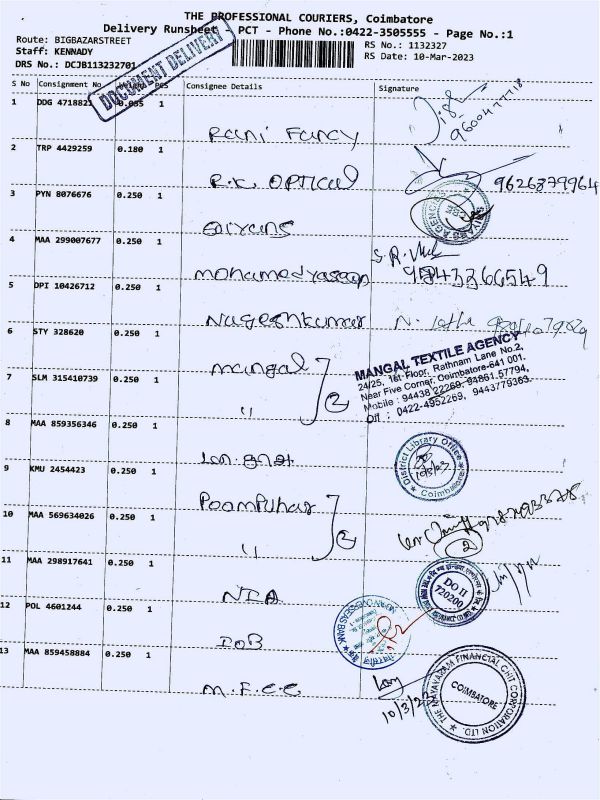 THE PROFESSIONAL COURIERS, Coimbatore
Delivery Runsheet - PCT - Phone No.:0422-3505555 - Page No.:1
Route: BIGBAZARSTREET
RS No.: 1132327
Staff: KENNADY
RS Date: 10-Mar-2023
DRS No.: DCJB113232701
DOCUMENT DELIVERY
S No Consignment No. PCS Consignee Details Signature
1 DDG 1
9600477718
Rani Fancy
2 TRP 4429259 0.180 1
R.K. OPTICAL 9626879964
3 PYN 8076676 0.250 1
4 MAA 299007677 0.250 1
S.R.
mohamedyaseen
5 DPI 10426712 0.250 1
Nageshkumar N.
6 STY 328620 0.250 1
mangal 2
MANGAL TEXTILE AGENCY
24/25, 1st Floor, Rathnam Lane No.2,
Near Five Corner, Coimbatore-641 001.
Mobile : 94438 22269, 94861 57794,
Off : 0422-4952269, 9443779363
7 SLM 315410739 0.250 1
"
8 MAA 859356346 0.250 1
District Library Office
10/3/23
Coimbatore
9 KMU 2454423 0.250 1
Poompuhar 2
10 MAA 569634026 0.250 1
"
2
11 MAA 298917641 0.250 1
NIA
DO II
720200
12 POL 4601244 0.250 1
IOB
INDIAN OVERSEAS BANK
13 MAA 859458884 0.250 1
M.F.C.C
10/3/23
THE MAYAVARAM FINANCIAL CHIT CORPORATION LTD.
COIMBATORE